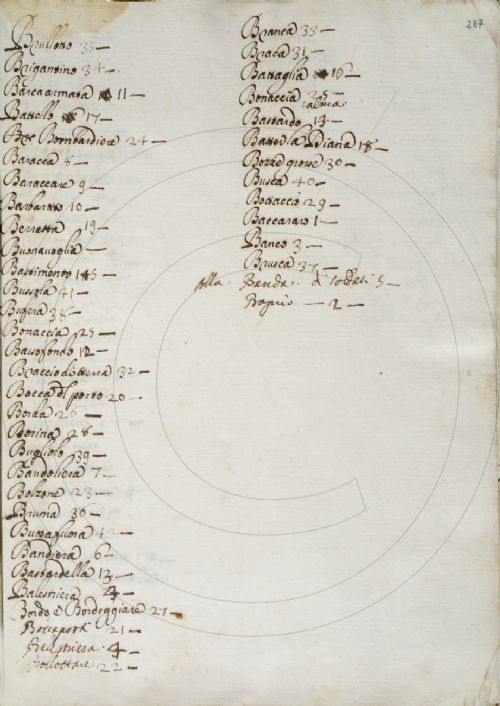 287
Brullotto 35
Brigantino 34
Barca armata 11
Battello 17
Bombardiere 24
Baracca 8
Baroccare 9
Barbarotto 10
Berretta 19
Buonavoglia
Bastimento 15
Bussola 41
Bufera 38
Bonaccia 25
Bassofondo 12
Braccio di terra 32
Bocca del porto 20
Borda 26
Borina 28
Bugliolo 39
Bandoliera 7
Bolzone 23
Bruma 36
Buttafuora 43
Bandiera 6
Bastardella 13
Balestriera 4
Bordo e Bordeggiare 27
Boccaporti 21
4
22
Branca 33
Braca 31
Battaglia 16
Bonaccia 25
calma
Bastardo 14
Batter la Diana 18
Bozze grosse 30
Busca 40
Bottaccio 29
Baccararo 1
Banco 3
Brusca 37
Banda 5
Bagno 2